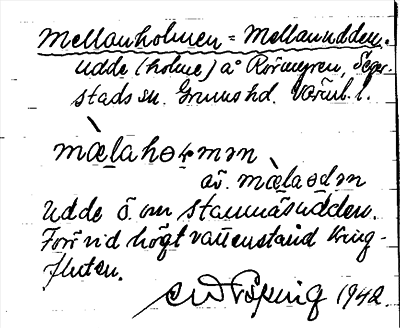 Mellanholmen = Mellanudden.
Udde (holme) å Rörmyren, Seger-
stads sn. Grums hd. Värml. l.
mæ̀lahoɽmən
äv. mæ̀laɵdən
Udde ö. om Stamnäsudden.
Förr vid högt vattenstånd kring-
fluten.
1942.